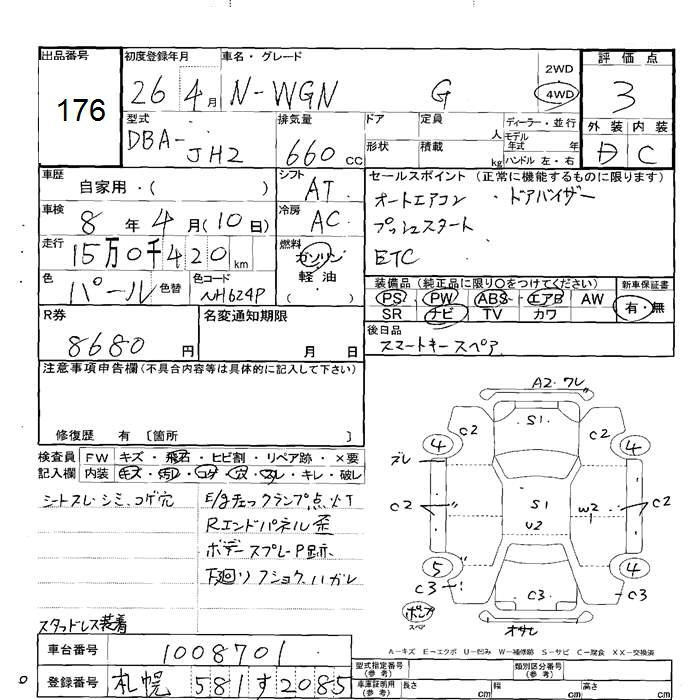 出品番号
176
初度登録年月
26 4月
車名・グレード
N-WGN G
2WD
4WD
評価点
3
外装 内装
D C
型式
DBA-
JH2
排気量
660 CC
ドア 定員 人
形状 積載 kg
ディーラー・並行
モデル
年式 年
ハンドル 左・右
車歴
自家用・( )
シフト
AT
セールスポイント (正常に機能するものに限ります)
オートエアコン ・ドアバイザー
プッシュスタート
ETC
車検
8年 4月(10日)
冷房
AC
走行
15万0千420km
燃料
ガソリン
軽油
( )
色
パール
色替
色コード
NH624P
装備品 (純正品に限り○をつけてください)
PS PW ABS エアB AW
SR ナビ TV カワ
新車保証書
有・無
R券
8680円
名変通知期限
月 日
後日品
スマートキースペア
注意事項申告欄(不具合内容等は具体的に記入して下さい)
修復歴 有 〔箇所 〕
検査員 FW キズ・飛石・ヒビ割・リペア跡・×要
記入欄 内装 キズ・汚レ・コゲ・穴・スレ・キレ・破レ
シートスレ・シミ、コゲ穴
E/gチェックランプ点灯
Rエンドパネル歪
ボデースプレーP跡、
下廻りフショク、ハガレ
スタッドレス装着
A2.ワレ
4 C2 S1 C2 4
ズレ
C2 S1 W2 C2
U2
5 C3 C3 C3 4
ポレス
スペア
オサレ
A-キズ E-エクボ U-凹み W-補修跡 S-サビ C-腐食 XX-交換済
車台番号
1008701
登録番号
札幌 581 す 2085
型式指定番号
(参考)
類別区分番号
(参考)
車庫証明用
(参考)
長さ cm 幅 cm 高さ cm